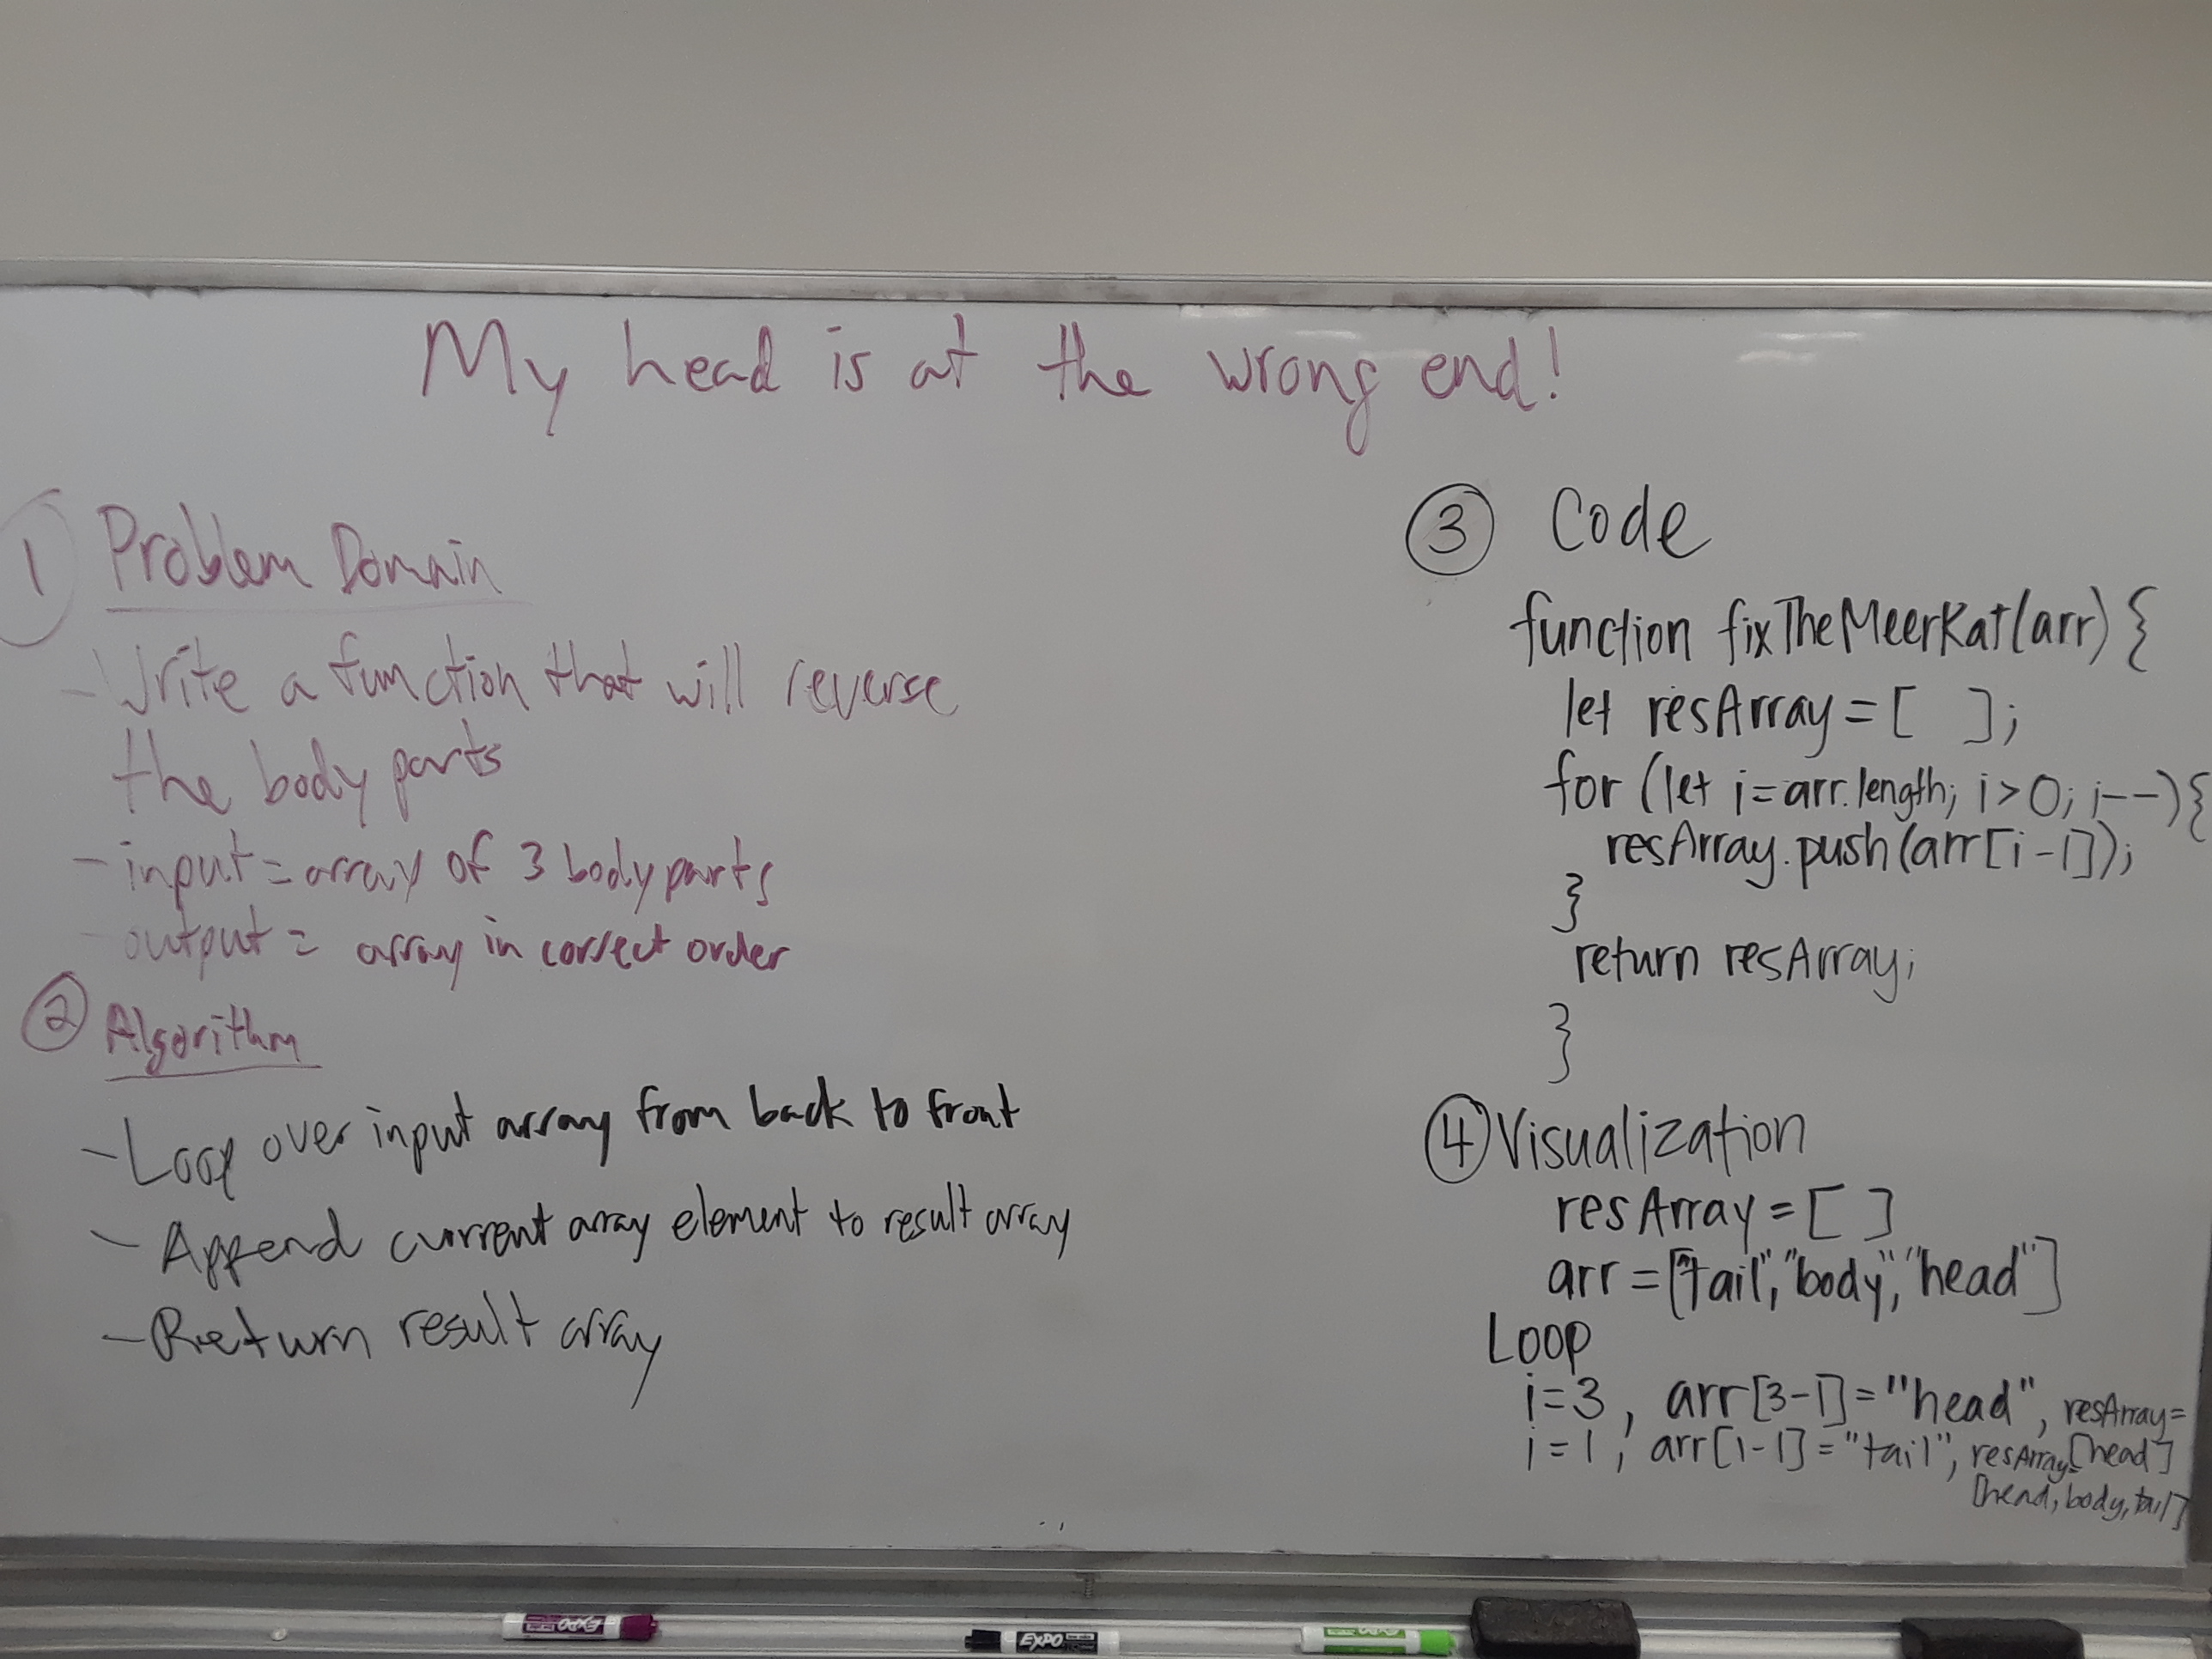 My head is at the wrong end!
1 Problem Domain
- Write a function that will reverse
the body parts
- input = array of 3 body parts
- output = array in correct order
2 Algorithm
- Loop over input array from back to front
- Append current array element to result array
- Return result array
3 Code
function fixTheMeerKat(arr) {
let resArray = [ ];
for (let i=arr.length; i>0; i--){
resArray.push(arr[i-1]);
}
return resArray;
}
4 Visualization
resArray = [ ]
arr = ["tail", "body", "head"]
Loop
i=3, arr[3-1]="head", resArray=
[head]
i=1, arr[1-1]="tail", resArray=
[head, body, tail]
EXPO
EXPO
EXPO